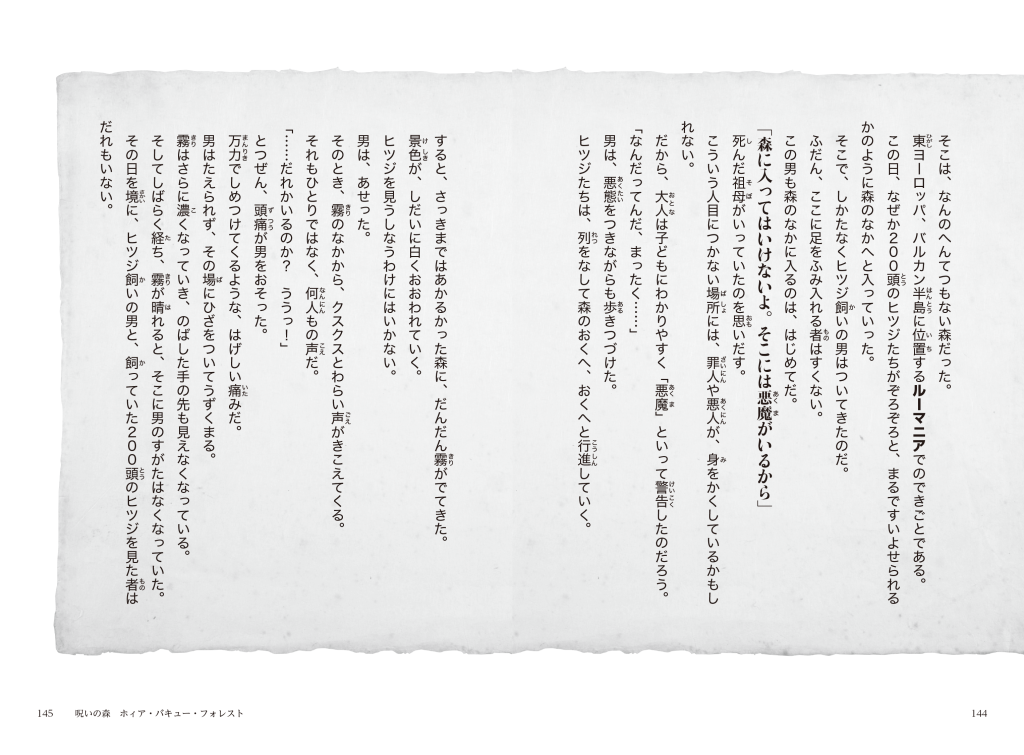 そこは、なんのへんてつもない森だった。
東ヨーロッパ、バルカン半島に位置するルーマニアでのできごとである。
この日、なぜか200頭のヒツジたちがぞろぞろと、まるですいよせられる
かのように森のなかへと入っていった。
そこで、しかたなくヒツジ飼いの男はついてきたのだ。
ふだん、ここに足をふみ入れる者はすくない。
この男も森のなかに入るのは、はじめてだ。
「森に入ってはいけないよ。そこには悪魔がいるから」
死んだ祖母がいっていたのを思いだす。
こういう人目につかない場所には、罪人や悪人が、身をかくしているかもし
れない。
だから、大人は子どもにわかりやすく「悪魔」といって警告したのだろう。
「なんだってんだ、まったく……」
男は、悪態をつきながらも歩きつづけた。
ヒツジたちは、列をなして森のおくへ、おくへと行進していく。
すると、さっきまではあかるかった森に、だんだん霧がでてきた。
景色が、しだいに白くおおわれていく。
ヒツジを見うしなうわけにはいかない。
男は、あせった。
そのとき、霧のなかから、クスクスとわらい声がきこえてくる。
それもひとりではなく、何人もの声だ。
「……だれかいるのか？　ううっ！」
とつぜん、頭痛が男をおそった。
万力でしめつけてくるような、はげしい痛みだ。
男はたえられず、その場にひざをついてうずくまる。
霧はさらに濃くなっていき、のばした手の先も見えなくなっている。
そしてしばらく経ち、霧が晴れると、そこに男のすがたはなくなっていた。
その日を境に、ヒツジ飼いの男と、飼っていた200頭のヒツジを見た者は
だれもいない。
144
145　呪いの森　ホィア・バキュー・フォレスト